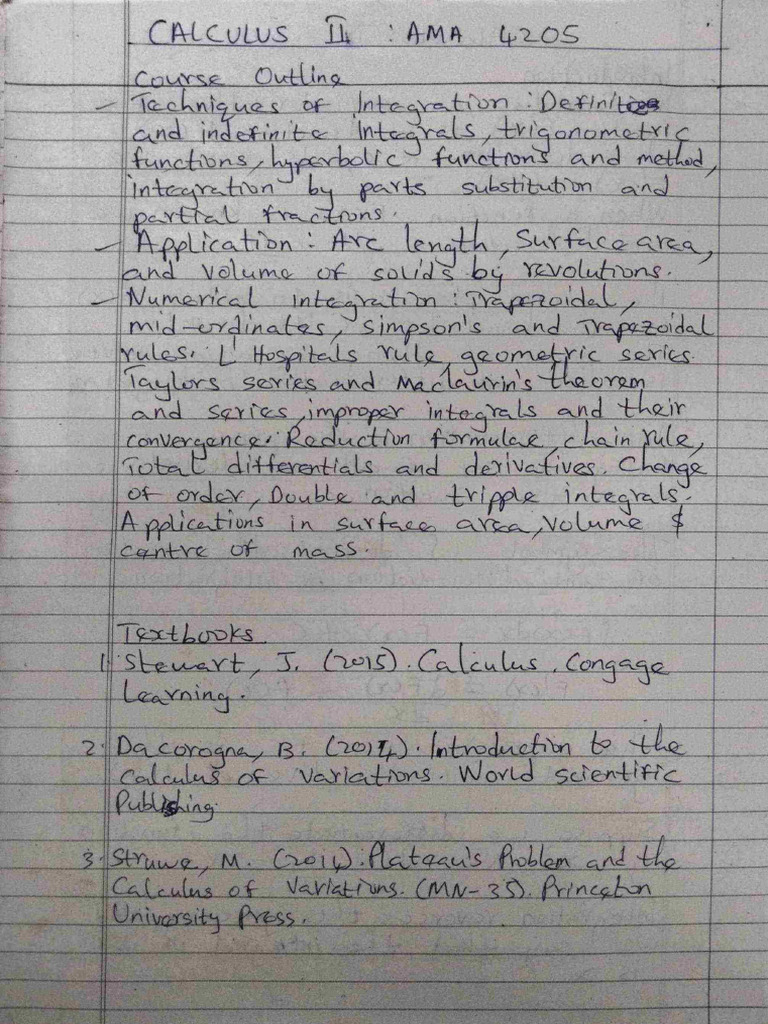 CALCULUS II : AMA 4205
Course Outline
- Techniques of Integration : Definite
and indefinite integrals, trigonometric
functions, hyperbolic functions and method,
integration by parts substitution and
partial fractions.
- Application : Arc length, Surface area,
and volume of solids by revolutions.
- Numerical integration : Trapezoidal,
mid-ordinates, Simpson's and Trapezoidal
rules. L' Hospitals rule, geometric series.
Taylors series and Maclaurin's theorem
and series, improper integrals and their
convergence. Reduction formulae, chain rule,
Total differentials and derivatives. Change
of order, Double and tripple integrals.
Applications in surface area, volume &
centre of mass.
Textbooks
1. Stewart, J. (2015). Calculus. Congage
Learning.
2. Dacorogna, B. (2014). Introduction to the
Calculus of Variations. World scientific
Publishing.
3. Struwe, M. (2014). Plateau's Problem and the
Calculus of Variations. (MN-35). Princeton
University Press.